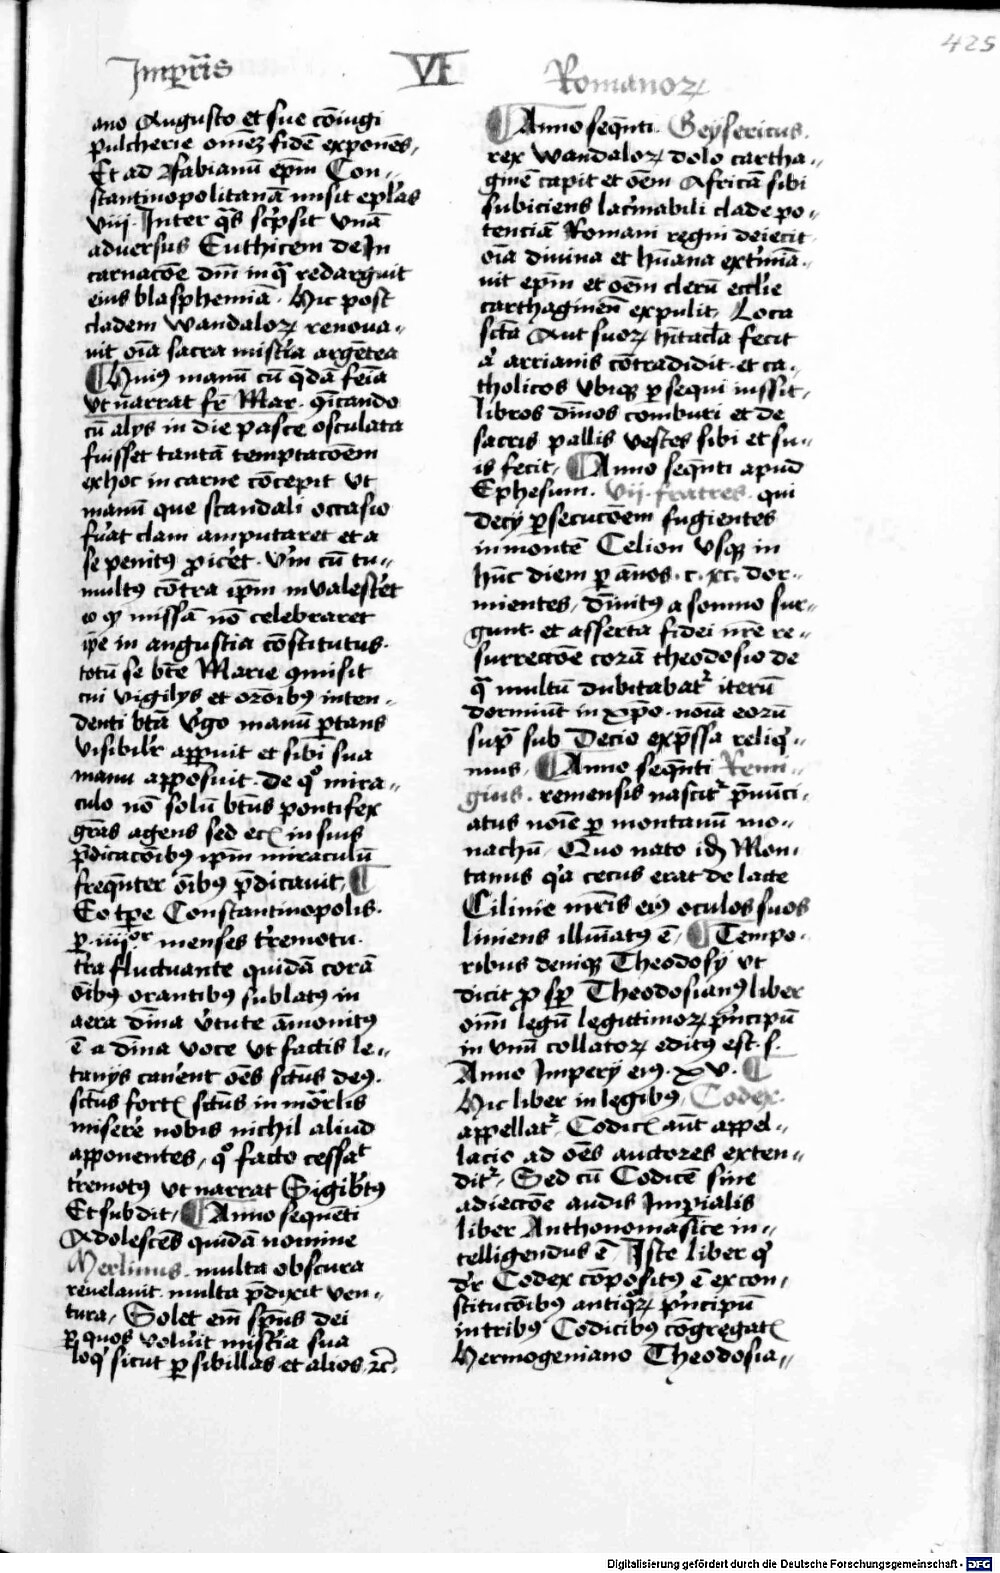 425
Imꝑr̃is VI Romanoꝝ
ano Augusto et sue cōiugi
pulcherie om̄eʒ fidē exponēs,
Et ad Fabianū ep̄m Con-
stantinopolitanā misit ep̄las
viij. Inter q̄s sc̓psit vnā
aduersus Euthicem de In
carnacōe dn̄i in q̄ redarguit
eius blasphemiā. Hic post
cladem Wandaloꝝ renoua-
uit oīa sacra mist̓ia argētea
Huius manū cū q̄dā feīa
vt narrat fr̄ Mar. q̄icando
cū alijs in die pasce osculata
fuisset tantā temptacōem
ex hoc in carne cōcepit vt
manū que scandali occasio
fu̓at clam amputaret et a
se penitꝰ ꝓic̓et. Vn̄ cū tu-
multꝰ cōtra ip̄m inualesc̓et
eo ꝙ missā nō celebraret
ip̄e in angustia cōstitutus.
totū se bt̄e Marie ꝯmisit
cui vigilijs et or̄oībꝰ inten-
denti bt̄a v̓go manū ꝑtans
visibilit̓ apparuit et sibi sua
manu apposuit. de qͦ mira-
culo nō solū bt̄us pontifex
gr̄as agens sed ecꝫ in suis
p̄dicacōibꝰ ip̄m miraculū
freq̄nter oībꝰ p̄dicauit,
Eo tꝑe Constantinopolis.
ꝑ .iiijor menses t̓remotu.
t̓ra fluctuante quidā corā
oībꝰ orantibꝰ sublatꝰ in
aera diuīa v̓tute āmonitꝰ
ē a diuīa voce vt factis le-
tanijs can̓ent oēs sc̄tus deꝰ.
sc̄tus fortꝫ sc̄tus inmor̄lis
miser̓e nobis nichil aliud
apponentes, qͦ facto cessat
t̓remotꝰ vt narrat Sigib̓tꝰ
Et subdit, Anno sequēti
Adolescēs quidā nomine
Merlinus. multa obscura
reuelauit. multa p̄dixit ven-
tura, Solet em̄ sp̄us dei
ꝑ quos volu̓it mist̓ia sua
loq̓ sicut ꝑ sibillas et alios, ꝛc̄.
Anno seq̄nti. Geysericus.
rex Wandaloꝝ dolo cartha-
ginē capit et oēm Africā sibi
subiciens lac̓mabili clade po-
tenciā Romani regni deiecit
oīa diuina et huana ext̓miā-
uit ep̄m et oēm clerū eccl̓ie
carthaginen̄ expulit, Loca
sc̄tā Aut suoꝝ h̄itac̄la fecit
a̓ arrianis cōtradidit. et ca-
tholicos vbiqꝫ ꝑsequi iussit,
libros diuīnos comburi et de
sacris pallis vestes sibi et su-
is fecit, Anno seq̄nti apud
Ephesum. vij. fratres. qui
decij ꝑsecucōem fugientes
in montē Celion vsqꝫ in
hūc diem ꝑ ānos .c.xc. dor-
mientes, diuīnitꝰ a somno sur-
gunt. et asserta fidei nr̄e re-
surrectōe corā theodosio de
q̄ multū dubitabat̉ iterū
dormiūt in xp̄o. noīa eorū
sup̄ sub Decio exp̄ssa reliqͥ-
mus. Anno seq̄nti Remi-
gius. remensis nascit̉ p̄nūci-
atus noīe ꝑ montanū mo-
nachū, Quo nato idꝫ Mon-
tanus qͥa cecus erat de lacte
Cilinie mr̄is eiꝰ oculos suos
liniens illuīatꝰ ē, Tempo-
ribus deniqꝫ Theodosij vt
dicit ꝓ spꝫ Theodosianꝰ liber
oīm legū legitimoꝝ p̓ncipū
in vnū collatoꝝ editꝰ est. s.
Anno Imperij eiꝰ. xv.
Hic liber in legibꝰ, Codex.
appellat̉. Codicꝫ aūt appel-
lacio ad oēs auctores exten-
dit̉, Sed cū Codicē sine
adiectōe audis Imꝑialis
liber Anthonomasice in-
telligendus ē, Iste liber qͥ
d̓r Codex cōpositꝰ ē ex con-
stitucōibꝰ antiqͦꝝ p̓ncipū
in tribꝰ Codicibꝰ cōgregatꝫ
Hermogeniano Theodosia-
Digitalisierung gefördert durch die Deutsche Forschungsgemeinschaft - DFG